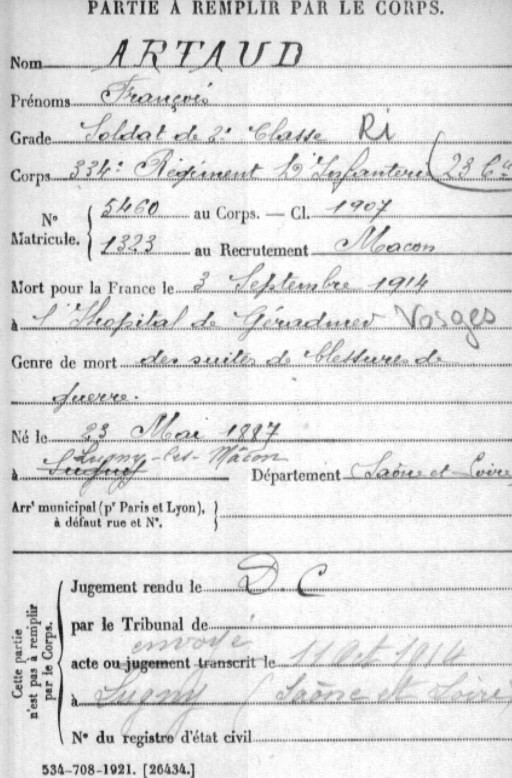 PARTIE À REMPLIR PAR LE CORPS.
Nom ARTAUD
Prénoms François
Grade Soldat de 2e Classe RI
Corps 334e Régiment d'Infanterie (23 Cie
N° Matricule. 5460 au Corps. — Cl. 1907
1323 au Recrutement Macon
Mort pour la France le 3 Septembre 1914
à l'hopital de Gérardmer Vosges
Genre de mort des suites de blessures de
guerre.
Né le 23 Mai 1887
Lugny-les-Mâcon
à Lugny Département Saône et Loire
Arrt municipal (pr Paris et Lyon),
à défaut rue et N°.
Cette partie n'est pas à remplir par le Corps.
Jugement rendu le D. C
par le Tribunal de
envoyé
acte ou jugement transcrit le 11 Oct 1914
à Lugny (Saône et Loire)
N° du registre d'état civil
534-708-1921. [26434.]